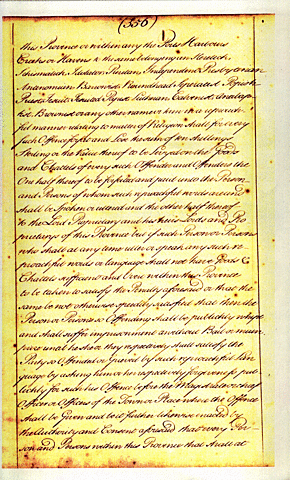 (356)
this Province or within any the Ports Harbours
Creeks or Havens to the same belonging an Heretick
Schismatick Idolator Puritan Independent Presbyterian
Antenomian Barrowist Roundhead Separatist Popish
Priest Jesuit Jesuited Papist Lutheran Calvenist Anabap
tist Brownist or any other name or term in a reproach
full manner relating to matter of Religion shall for every
such Offence forfeit and lose the sum of ten shillings
Sterling or the Value thereof to be levyed on the Goods
and Chattels of every such Offender and Offenders the
One half thereof to be forfeited and paid unto the Person
and Persons of whom such reproachful words are or
shall be spoken or uttered and the other half thereof
to the Lord Proprietary and his heires Lords and Pro
prietarys of this Province but if such Person or Persons
who shall at any time utter or speak any such re
proachful words or language shall not have Goods or
Chattels sufficient and overt within this Province
to be taken to satisfy the Penalty aforesaid or that the
same be not otherwise speedily satisfied that then the
Person or Persons so Offending shall be publickly whipt
and shall suffer imprisonment without Bail or main
prize until he she or they respectively shall satisfy the
Party so Offended or grieved by such reproachful lan
guage by asking him or her respectively forgiveness pub
lickly for such his Offence before the Magistrate or chief
Officer or Officers of the Town or Place where such Offence
shall be Given and be it further likewise enacted by
the Authority and Consent aforesaid that every Per
son and Persons within this Province that shall at